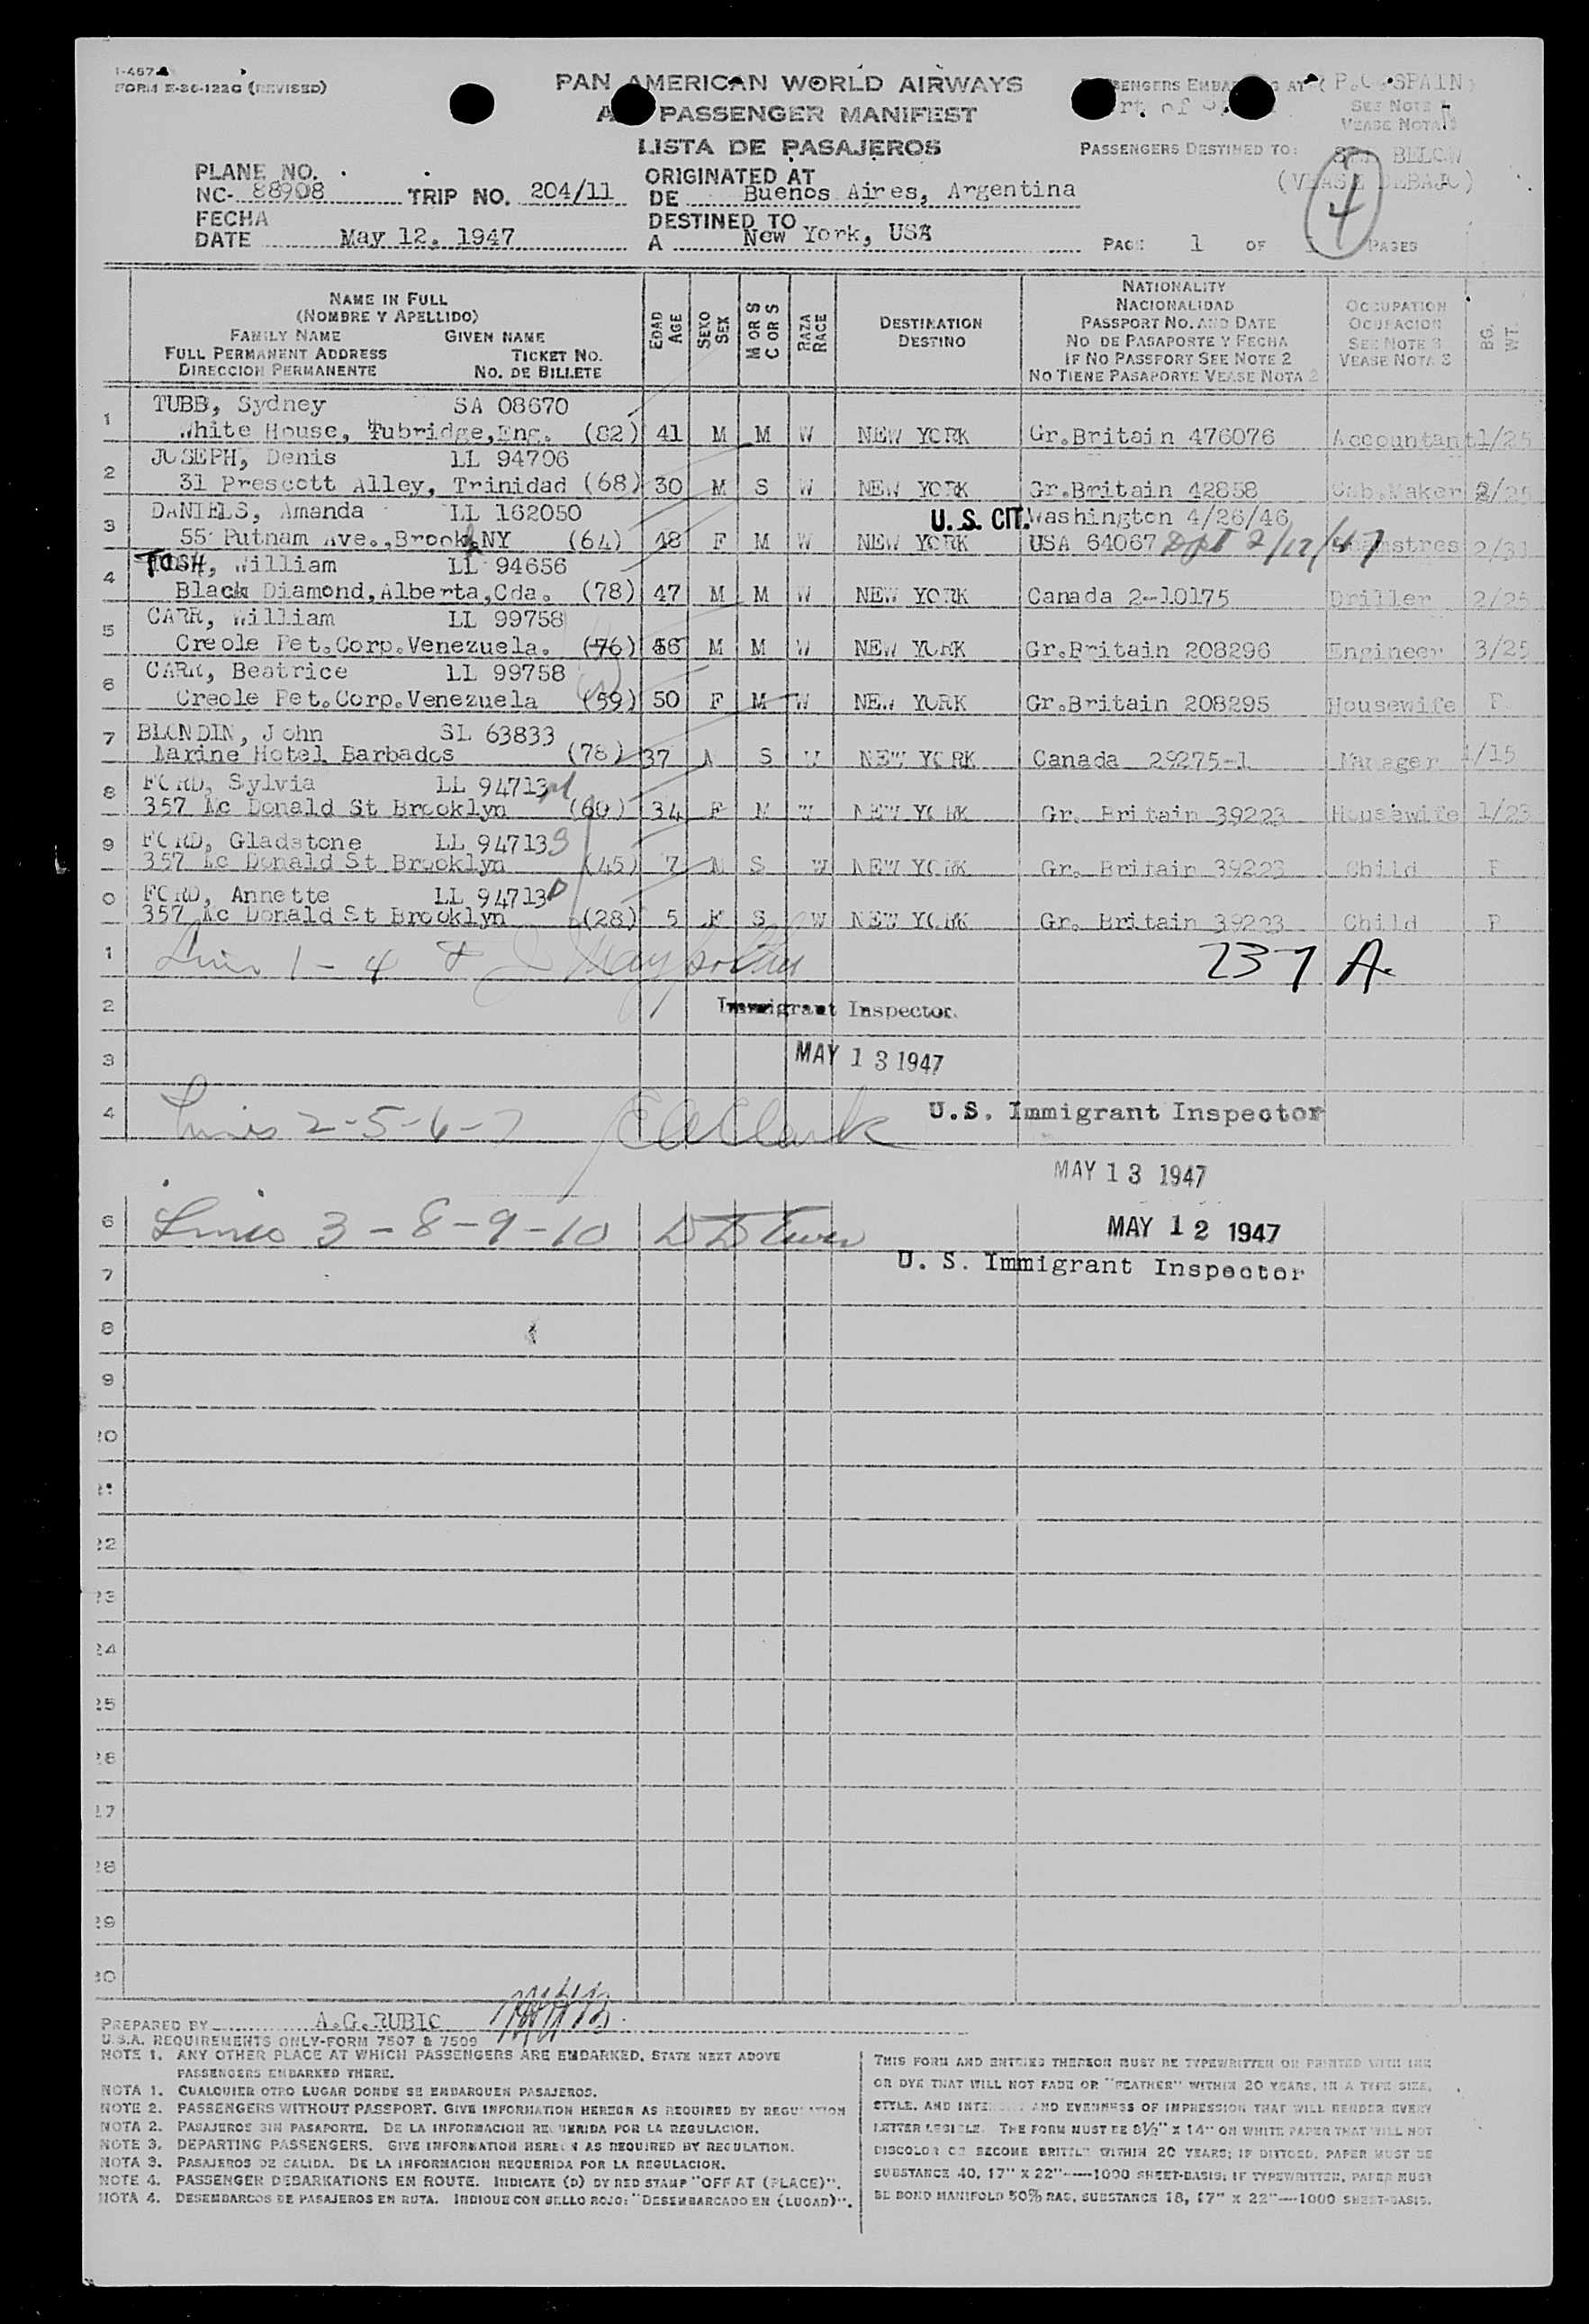 I-467
FORM E-36-122C (REVISED)
PAN AMERICAN WORLD AIRWAYS
PASSENGER MANIFEST
LISTA DE PASAJEROS
AT ( P.O. SPAIN )
SEE NOTE 1
VEASE NOTA
PASSENGERS DESTINED TO: SEE BELOW
(VEASE DEBAJO)
4
PLANE NO.
NC- 88908 TRIP NO. 204/11
ORIGINATED AT
DE Buenos Aires, Argentina
FECHA
DATE May 12, 1947
DESTINED TO
A New York, USA
PAGE 1 OF PAGES
NAME IN FULL
(NOMBRE Y APELLIDO)
FAMILY NAME GIVEN NAME
FULL PERMANENT ADDRESS TICKET NO.
DIRECCION PERMANENTE NO. DE BILLETE
EDAD AGE
SEXO SEX
M OR S C OR S
RAZA RACE
DESTINATION
DESTINO
NATIONALITY
NACIONALIDAD
PASSPORT NO. AND DATE
NO DE PASAPORTE Y FECHA
IF NO PASSPORT SEE NOTE 2
NO TIENE PASAPORTE VEASE NOTA 2
OCCUPATION
OCUPACION
SEE NOTE 3
VEASE NOTA 3
BG. WT.
1 TUBB, Sydney SA 08670
White House, Tubridge,Eng. (82) 41 M M W NEW YORK Gr.Britain 476076 Accountant 1/25
2 JOSEPH, Denis LL 94706
31 Prescott Alley, Trinidad (68) 30 M S W NEW YORK Gr.Britain 42858 Cab.Maker 2/25
3 DANIELS, Amanda LL 162050 U.S. CIT. Washington 4/26/46
55 Putnam Ave.,Brook,NY (64) 48 F M W NEW YORK USA 64067 2/12/47 2/31
4 TOSH, William LL 94656
Black Diamond,Alberta,Cda. (78) 47 M M W NEW YORK Canada 2-10175 Driller 2/25
5 CARR, William LL 99758
Creole Pet.Corp.Venezuela. (76) 56 M M W NEW YORK Gr.Britain 208296 Engineer 3/25
6 CARR, Beatrice LL 99758
Creole Pet.Corp.Venezuela (59) 50 F M W NEW YORK Gr.Britain 208295 Housewife P
7 BLONDIN, John SL 63833
Marine Hotel Barbados (78) 37 M S W NEW YORK Canada 29275-1 Manager 1/15
8 FORD, Sylvia LL 94713
357 Mc Donald St Brooklyn (60) 34 F M W NEW YORK Gr. Britain 39223 Housewife 1/23
9 FORD, Gladstone LL 94713
357 Mc Donald St Brooklyn (45) 7 M S W NEW YORK Gr. Britain 39223 Child P
0 FORD, Annette LL 94713
357 Mc Donald St Brooklyn (28) 5 F S W NEW YORK Gr. Britain 39223 Child P
1 Lines 1-4 237 A.
2 Immigrant Inspector.
3 MAY 13 1947
4 Lines 2-5-6-7 E A Clark U.S. Immigrant Inspector
MAY 13 1947
6 Lines 3-8-9-10 MAY 12 1947
7 U. S. Immigrant Inspector
8
9
20
21
22
23
24
25
26
27
28
29
30
PREPARED BY A.G.RUBIO
U.S.A. REQUIREMENTS ONLY-FORM 7507 & 7509
NOTE 1. ANY OTHER PLACE AT WHICH PASSENGERS ARE EMBARKED, STATE NEXT ABOVE
PASSENGERS EMBARKED THERE.
NOTA 1. CUALQUIER OTRO LUGAR DONDE SE EMBARQUEN PASAJEROS.
NOTE 2. PASSENGERS WITHOUT PASSPORT. GIVE INFORMATION HEREON AS REQUIRED BY REGULATION
NOTA 2. PASAJEROS SIN PASAPORTE. DE LA INFORMACION REQUERIDA POR LA REGULACION.
NOTE 3. DEPARTING PASSENGERS. GIVE INFORMATION HEREON AS REQUIRED BY REGULATION.
NOTA 3. PASAJEROS DE SALIDA. DE LA INFORMACION REQUERIDA POR LA REGULACION.
NOTE 4. PASSENGER DEBARKATIONS EN ROUTE. INDICATE (D) BY RED STAMP "OFF AT (PLACE)".
NOTA 4. DESEMBARCOS DE PASAJEROS EN RUTA. INDIQUE CON SELLO ROJO: "DESEMBARCADO EN (LUGAR)".
THIS FORM AND ENTRIES THEREON MUST BE TYPEWRITTEN OR PRINTED WITH INK
OR DYE THAT WILL NOT FADE OR "FEATHER" WITHIN 20 YEARS, IN A TYPE SIZE,
STYLE, AND INTENSITY AND EVENNESS OF IMPRESSION THAT WILL RENDER EVERY
LETTER LEGIBLE. THE FORM MUST BE 8½" X 14" ON WHITE PAPER THAT WILL NOT
DISCOLOR OR BECOME BRITTLE WITHIN 20 YEARS; IF DITTOED, PAPER MUST BE
SUBSTANCE 40, 17" X 22"----1000 SHEET-BASIS; IF TYPEWRITTEN, PAPER MUST
BE BOND MANIFOLD 50% RAG, SUBSTANCE 18, 17" X 22"---1000 SHEET-BASIS.